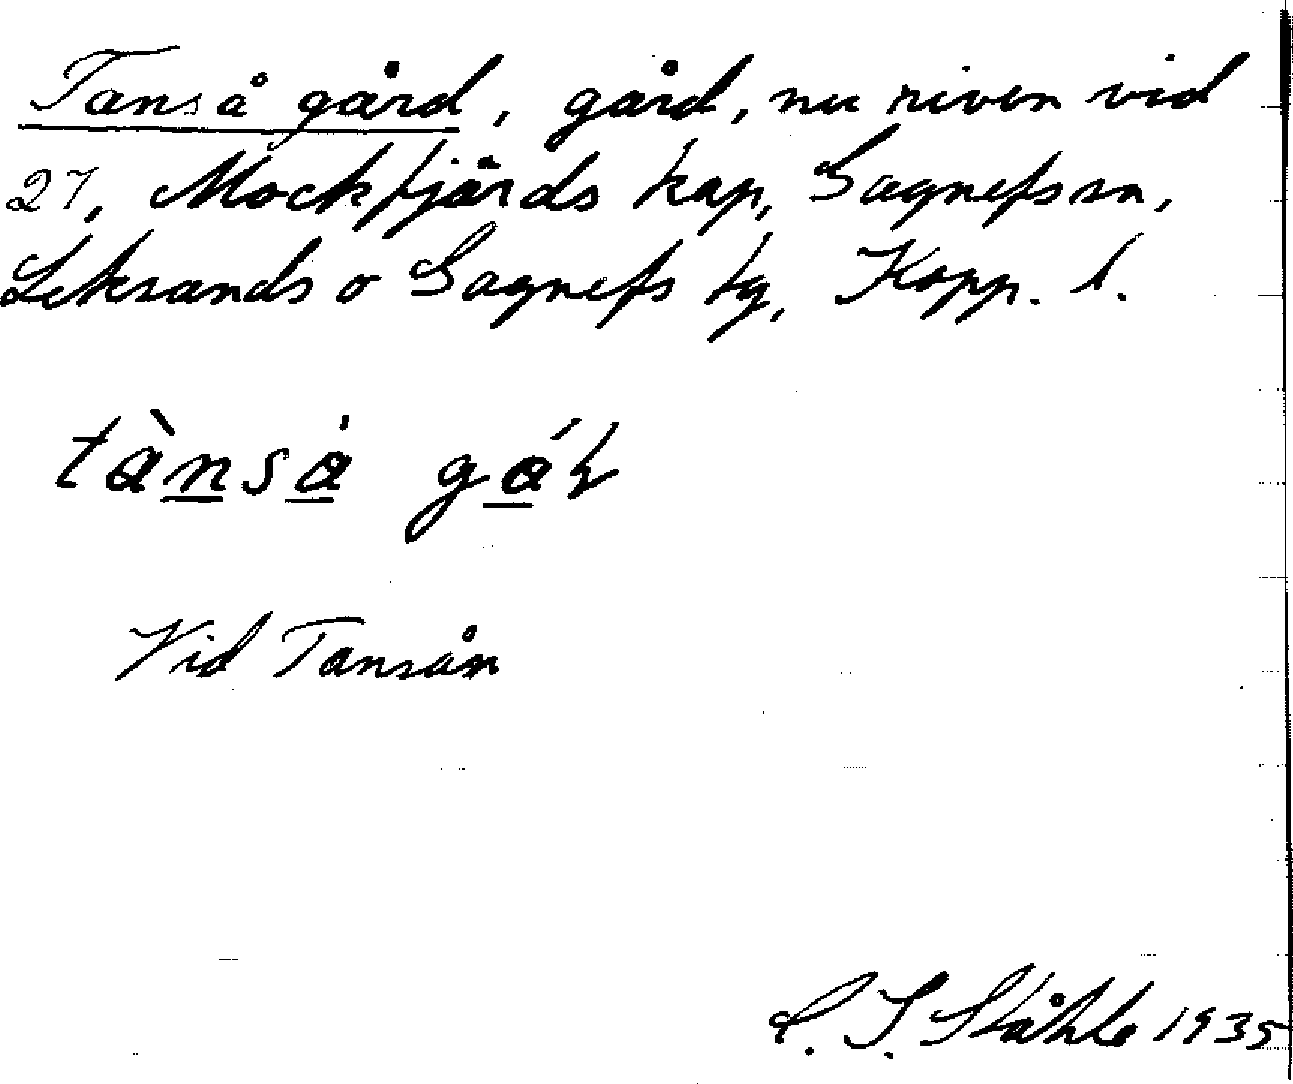 Tanså gård, gård, nu riven vid
27, Mockfjärds kap, Gagnefs sn,
Leksands o Gagnefs tg, Kopp. l.
tànså gå
Vid Tansån
C. I. Ståhle 1935